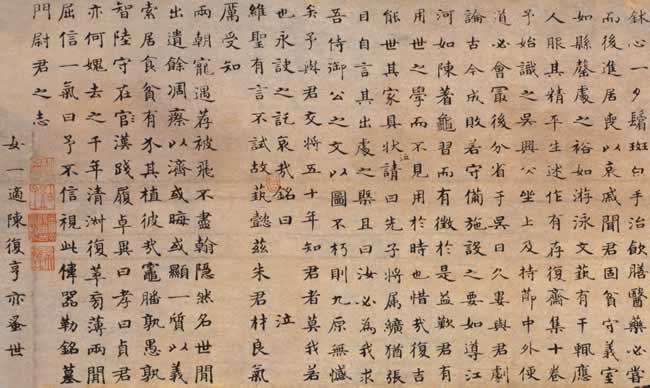 鉥心一夕鬚斑白手治飲膳醫藥必嘗
而後進居喪以哀戚聞君固貧守義室
如縣罄處之裕如游泳文藝有干輒應
人服其精平生述作有存復齋集十卷
予始識之吳興公坐上及持節中外便
道必會㝡後分省于吳日久婁與君劇
論古今成敗若守備施設之要如導江
河如陳蓍龜習而有徵於是益歎君有
用世之學而不見用於時也惜哉復吉
能世其家具狀泣請曰先子將屬纊猶張
目自言其出處之槩且曰汝必為我求
吾侍御公之文以圖不朽則九原無憾
矣予與君交將五十年知君者莫我若
也永訣之託哀哉銘曰 泣
維聖有言不試故蓺懿茲朱君材良氣
厲受知
兩朝寵遇荐被飛不盡翰隱然名世聞
出遺餘凋瘵以濟或晦或顯一質以義
索居食貧有其植彼哉竈膰孰愚孰
智陸守在官漢踐履卓異曰孝曰貞君
亦何媿去之千年清復萃薄兩間
屈信一氣曰予不信視此偉器勒銘墓
門尉君之志
女一適陳復亨亦蚤世